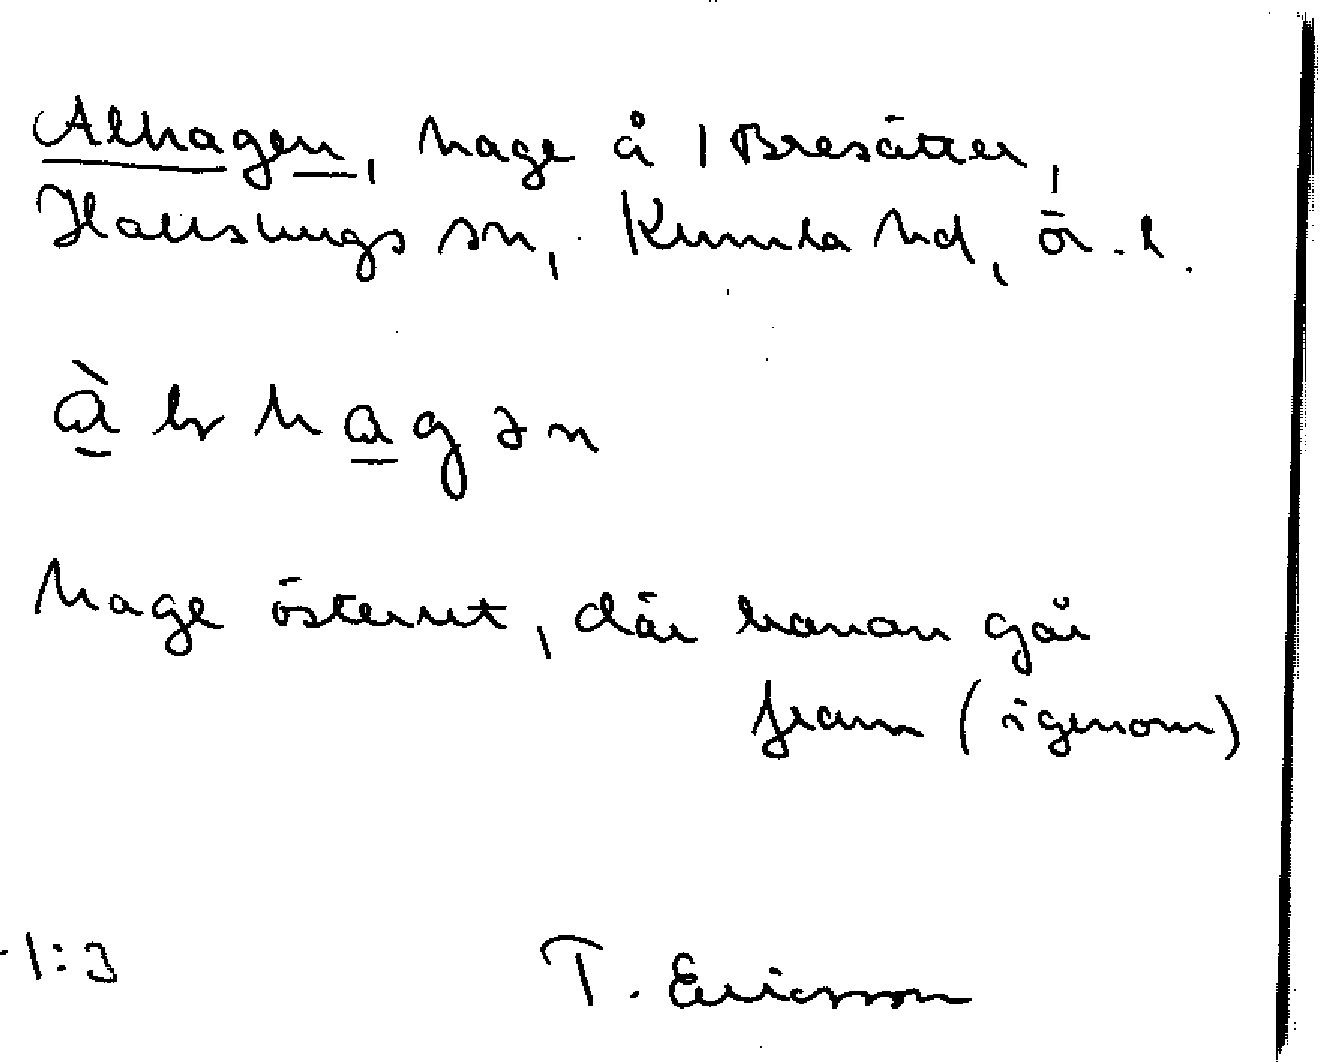 Alhagen, hage å 1 Bresätter,
Hallsbergs sn, Kumla hd, Ör. l.
àlhagən
hage österut, där banan går
fram (igenom)
1:3
T. Ericsson